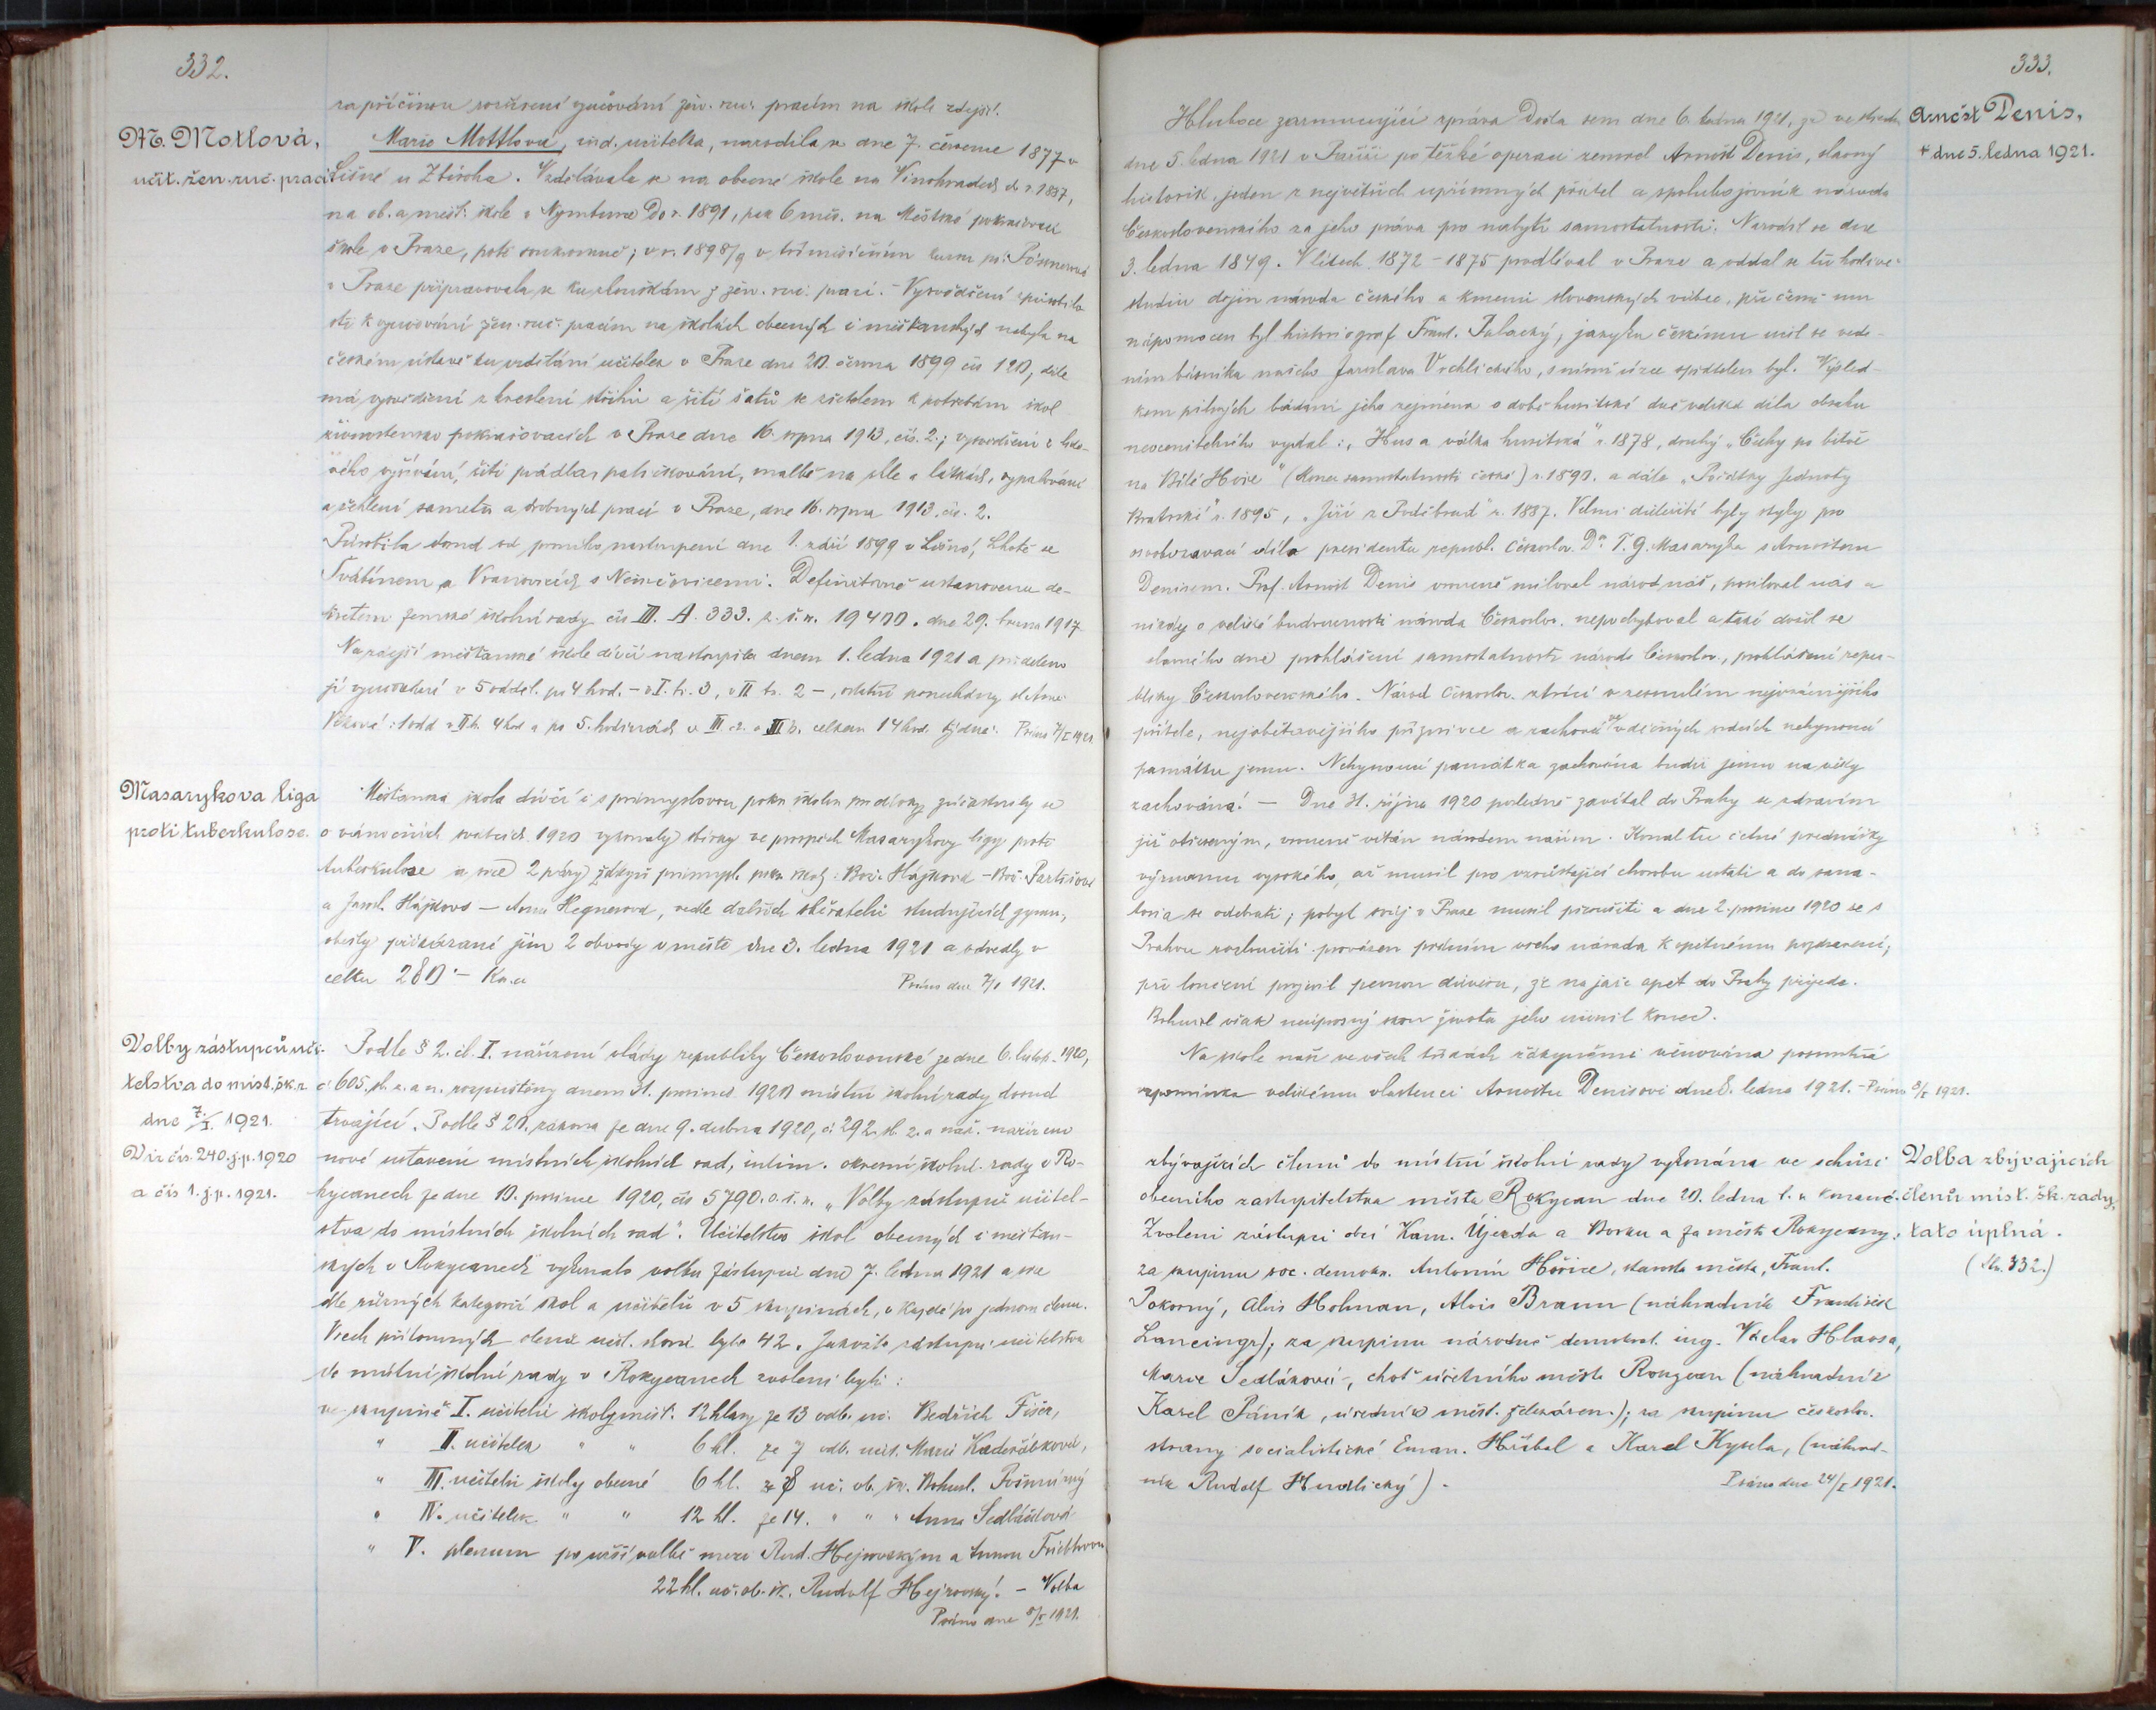 332.
za příčinou rozšíření vyučování žen. ruč. pracím na škole zdejší.
M. Motlová,
učit. žen. ruč. prací
Marie Mottlová, ind. učitelka, narodila se dne 7. července 1877 v
Líšné u Zbiroha. Vzdělávala se na obecné škole na Vinohradech do r. 1887,
na ob. a měšť. škole v Nymburce do r. 1891, pak 6 měs. na Městské pokračovací
škole v Praze, poté soukromně; v r. 1898/9 v tříměsíčním kursu pí.
v Praze připravovala se ku zkouškám z žen. ruč. prací. - Vysvědčení způsobilo-
sti k vyučování žen. ruč. pracím na školách obecných i měšťanských nabyla na
českém ústavě ku vzdělání učitelek v Praze dne 20. června 1899 čís 120, dále
má vysvědčení z kreslení střihů a šití šatů se zřetelem k potřebám škol
živnostensko pokračovacích v Praze dne 16. srpna 1913, čís. 2.; vysvědčení z
vyšívání, šití prádla, paličkování, malbě na skle a látkách, vypalování
a žehlení sametu a drobných prací v Praze, dne 16. srpna 1913, čís. 2.
Působila dosud od prvního nastoupení dne 1. září 1899 v Líšné, Lhotě u
Svábínem a Vranovicích s Němčovicemi. Definitivně ustanovena de-
kretem zemské školní rady čís III. A. 333. z. š. r. 19400. dne 29. března 1917.
Na zdejší měšťanské škole dívčí nastoupila dnem 1. ledna 1921 a přiděleno
jí vyučování v 5 odděl. po 4 hod. - v I. tř. 3, v II tř. 2 -, ostatní ponechány slečně
Vlkové: 1 odd v II tř. 4 hod a po 5. hodinách v III. a. a III b. celkem 14 hod. týdně. Psáno 7/I 1921.
Masarykova liga
proti tuberkulose.
Měšťanská škola dívčí i s průmyslovou pokr. školou pro dívky zúčastnily se
o vánočních svátcích 1920 vykonaly sbírky ve prospěch Masarykovy ligy proti
tuberkulose a sice 2 páry žákyň průmysl. pokr. školy: Bož. Hájková - Bož.
a Jarosl. Hájkova - Anna Hegnerová, vedle dalších sběratelů studujících gymn.,
obešly přikázané jim 2 obvody v městě dne 3. ledna 1921 a odvedly v
celku 280·- Kč.
Psáno dne 7/I 1921.
Volby zástupců uči-
telstva do míst. šk. r.
dne 7./I. 1921.
Viz čís. 240. j. p. 1920
a čís 1. j. p. 1921.
Podle § 2. čl. I. nařízení vlády republiky Československé ze dne 6. listop. 1920,
č 605. sb. z. a n. rozpuštěny dnem 31. prosince 1920 místní školní rady dosud
trvající. Podle § 20. zákona ze dne 9. dubna 1920, č. 292. sb. z. a nař. nařízeno
nové ustavení místních školních rad, intim. okresní školní rady v Ro-
kycanech ze dne 10. prosince 1920, čís 5790. o. š. r. „Volby zástupců učitel-
stva do místních školních rad". Učitelstvo škol obecných i měšťan-
ských v Rokycanech vykonalo volbu zástupců dne 7. ledna 1921 a sice
dle různých kategorií škol a učitelů v 5 skupinách, v každé po jednom členu.
Všech přítomných členů učit. sborů bylo 42. Jakožto zástupci učitelstva
do místní školní rady v Rokycanech zvoleni byli:
ve skupině I. učitelů školy měšť. 12 hlasy ze 13 odb. uč. Bedřich Fišer,
" II. učitelek " " 6 hl. ze 7 odb. učit. Marie Kadeřábková,
" III. učitelů školy obecné 6 hl. ze 8 uč. ob. šk. Bohusl.
" IV. učitelek " " 12 hl. ze 14. " " " Anna Sedláčková
" V. plenum po užší volbě mezi Rud. Hejrovským a Annou
22 hl. uč. ob. šk. Rudolf Hejrovský. - Volba
Psáno dne 8/I 1921.
333.
Arnošt Denis,
† dne 5. ledna 1921.
Hluboce zarmucující zpráva došla sem dne 6. ledna 1921, že ve středu
dne 5. ledna 1921 v Paříži po těžké operaci zemřel Arnošt Denis, slavný
historik, jeden z největších upřímných přátel a spolubojovník národa
Československého za jeho práva pro nabytí samostatnosti. Narodil se dne
3. ledna 1849. V létech 1872 - 1875 prodléval v Praze a oddal se tu horlivě
studiu dějin národa českého a kmenů slovanských vůbec, při čemž mu
nápomocen byl historiograf Frant. Palacký, jazyku českému učil se vede-
ním básníka našeho Jaroslava Vrchlického, s nímž úzce spřátelen byl. Výsled-
kem pilných bádání jeho zejména o době husitské dvě veliká díla obsahu
neocenitelného vydal: „Hus a válka husitská" r. 1878, druhý „Čechy po bitvě
na Bílé Hoře" (Konec samostatnosti české) r. 1890. a dále „Počátky Jednoty
Bratrské" r. 1895, „Jiří z Poděbrad" r. 1887. Velmi důležité byly styky pro
osvobozovací díla presidenta republ. Českoslov. Dra T. G. Masaryka s Arnoštem
Denisem. Prof. Arnošt Denis vroucně miloval národ náš, posiloval nás a
nikdy o veliké budoucnosti národa Českoslov. nepochyboval a také dožil se
slavného dne prohlášení samostatnosti národa Českoslov., prohlášení repu-
bliky Československé. Národ českoslov. ztrácí v zesnulém nejvzácnějšího
přítele, nejobětavějšího příznivce a zachová ve vděčných srdcích nehynoucí
památku jemu. Nehynoucí památka zachována budiž jemu na věky
zachována! - Dne 31. října 1920 posledně zavítal do Prahy se zdravím
již otřeseným, vroucně vítán národem naším. Konal tu četné přednášky
významu vysokého, až musil pro vzrůstající chorobu ustati a do sana-
toria se odebrati; pobyt svůj v Praze musil přerušiti a dne 2. prosince 1920 se s
Prahou rozloučiti provázen přáním všeho národa k opětnému pozdravení;
při loučení projevil pevnou důvěru, že na jaře opět do Prahy přijede.
Bohužel však neúprosný skon života jeho učinil konec.
Na škole naší ve všech třídách žákyněmi věnována posmrtná
vzpomínka velikému vlastenci Arnoštu Denisovi dne 8. ledna 1921. - Psáno 8/I 1921.
Volba zbývajících
členů míst. šk. rady,
tato úplná.
(Str. 332.)
zbývajících členů do místní školní rady vykonána ve schůzi
obecního zastupitelstva města Rokycan dne 20. ledna t. r. konané.
Zvoleni zástupci obcí Kam. Újezda a Borku a za město Rokycany:
za skupinu soc. demokr. Antonín Hořice, starosta města, Frant.
Pokorný, Alois Holman, Alois Braun (náhradník František
Lancinger); za skupinu národně demokrat. ing. Václav Hlavsa,
Marie Sedláková, choť účetního města Rokycan (náhradník
Karel Páník, úředník měst. železáren.); za skupinu českoslov.
strany socialistické Eman. Hříbal a Karel Kysela, (náhrad-
ník Rudolf Hudlický).
Psáno dne 24/I 1921.